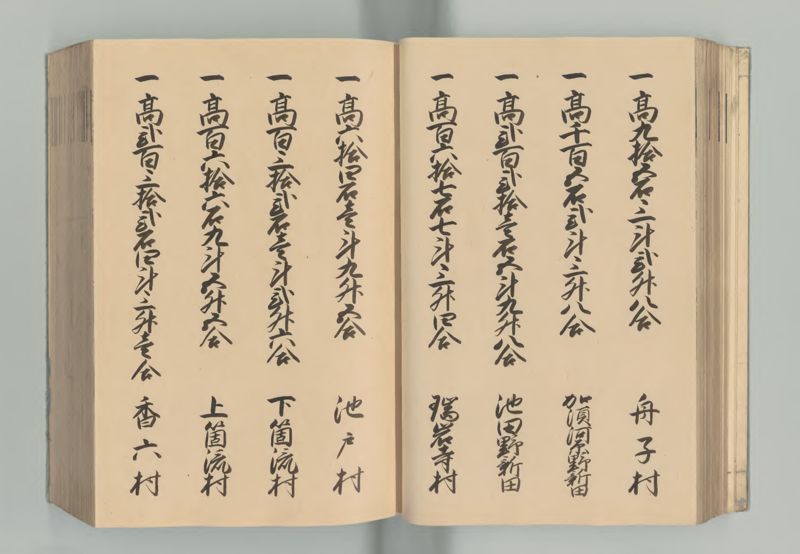 一高九拾五石三斗弐升八合 舟子村
一高千百五石弐斗三升八合 加須河野新田
一高弐百弐拾壱石五斗九升八合 池田野新田
一高百六拾七石七斗三升四合 瑞岩寺村
一高六拾四石壱斗九升五合 池戸村
一高百三拾弐石壱斗弐升六合 下箇流村
一高百六拾六石九斗五升五合 上箇流村
一高弐百三拾弐石四斗三升壱合 香六村